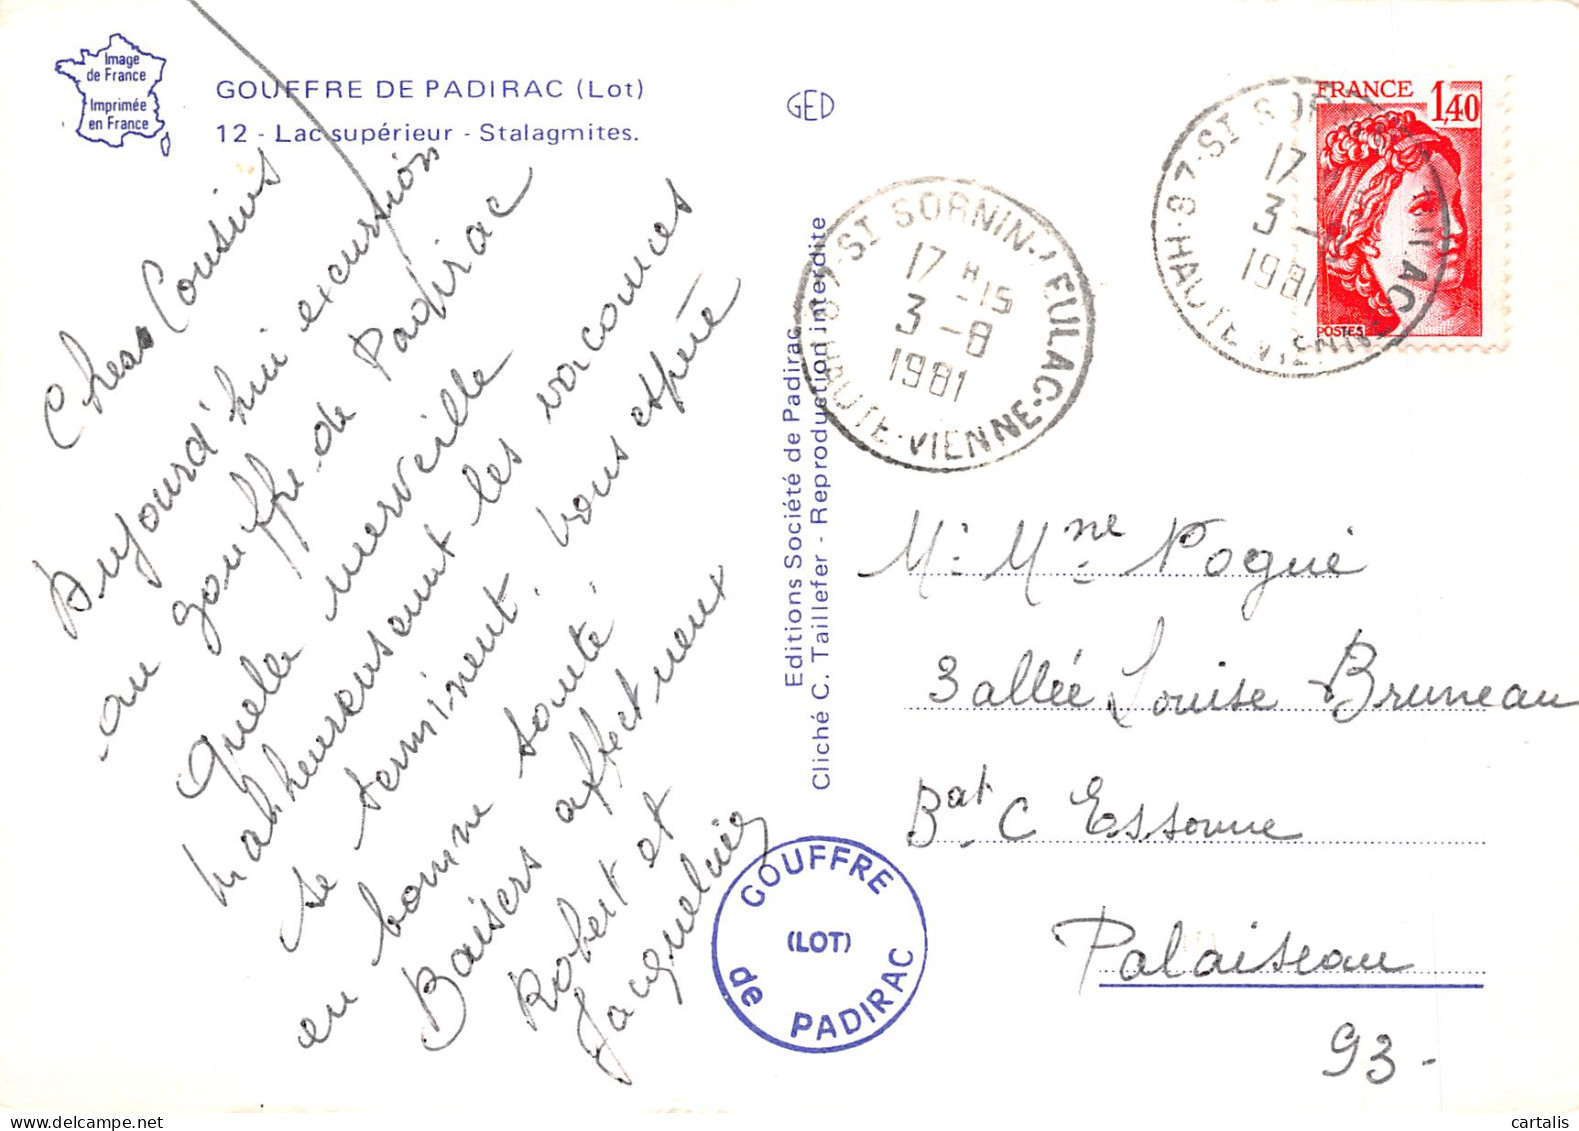 Image
de France
Imprimée
en France
GOUFFRE DE PADIRAC (Lot)
12 - Lac supérieur - Stalagmites.
GED
Chers Cousins
Aujourd'hui excursion
au gouffre de Padirac
Quelle merveille
Malheureusement les vacances
se terminent. Vous espère
en bonne santé.
Baisers affectueux
Robert et
Jacqueline
Editions Société de Padirac
Cliché C. Taillefer - Reproduction interdite
87 - ST SORNIN - LEULAC
17 H 15
3 - 8
1981
HAUTE - VIENNE
87 - ST SORNIN LEULAC
17
3 - 8
1981
HAUTE VIENNE
FRANCE
1,40
POSTES
Mr Mme Pogué
3 allée Louise Bruneau
Bat C Essonne
Palaiseau
93 -
GOUFFRE
(LOT)
de PADIRAC
cartalis
delcampe.net